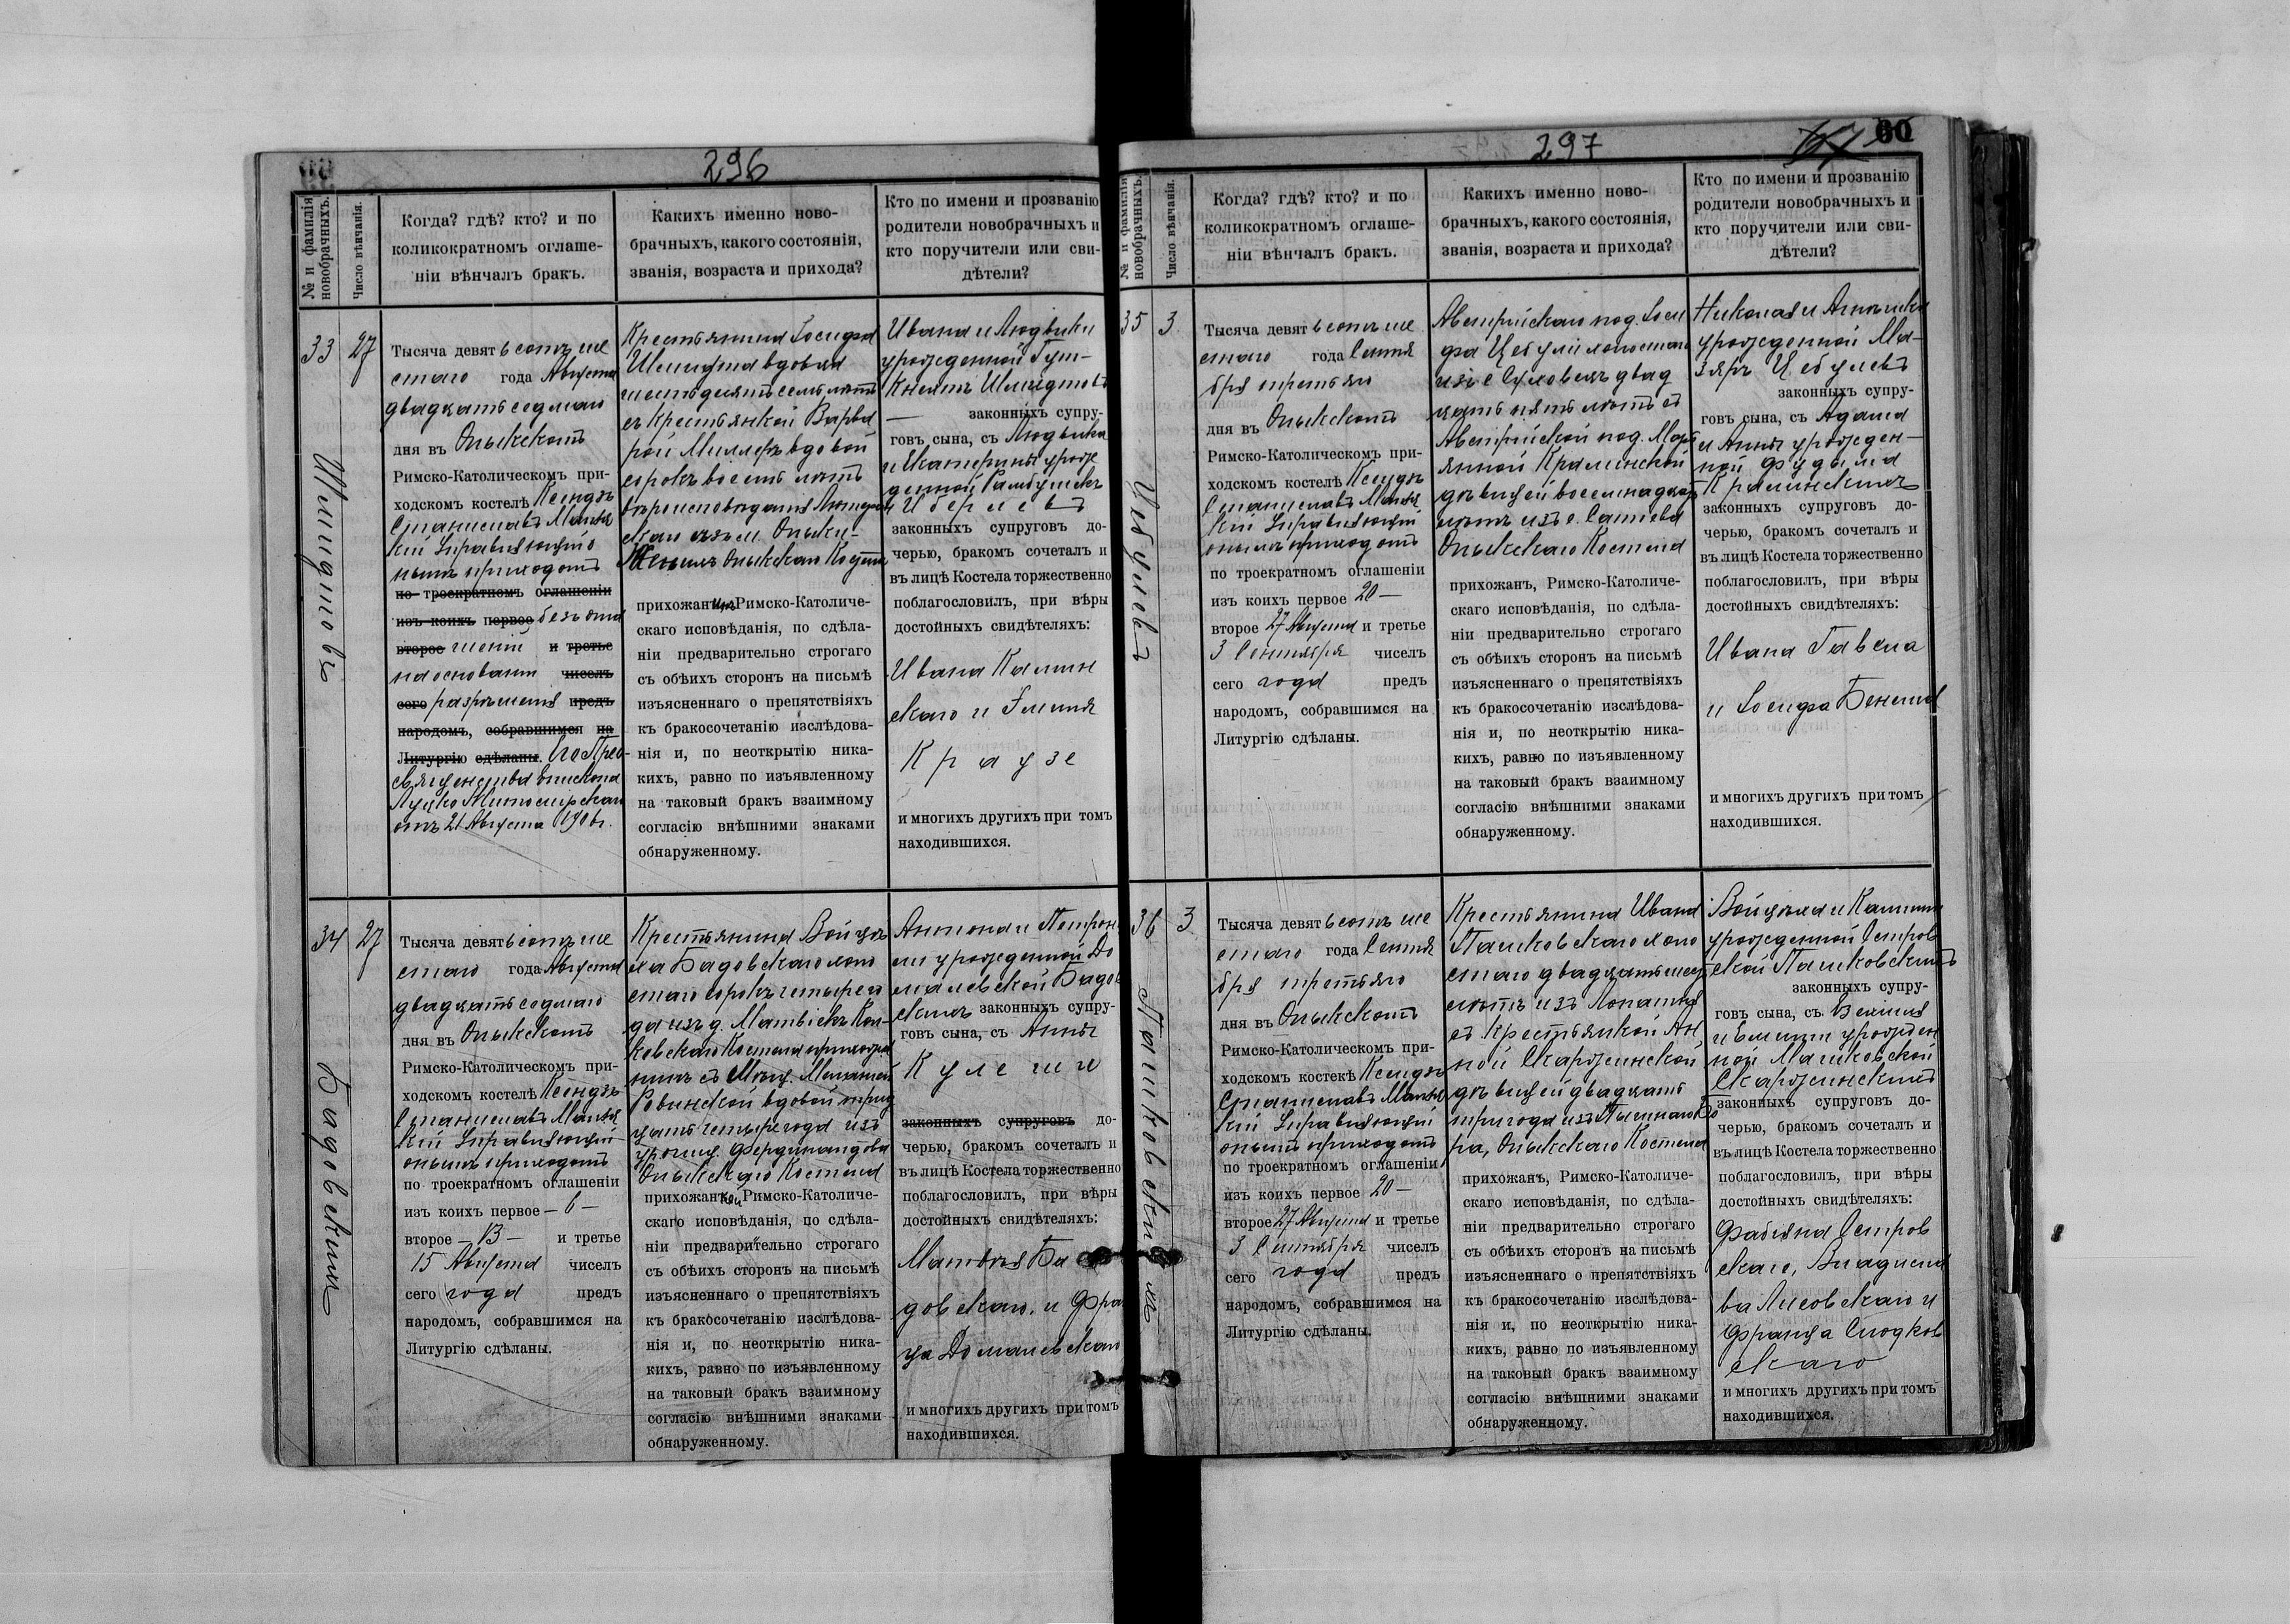 296
№ и фамилія новобрачныхъ.
Число вѣнчанія.
Когда? гдѣ? кто? и по
коликократномъ оглаше-
ніи вѣнчалъ бракъ.
Какихъ именно ново-
брачныхъ, какого состоянія,
званія, возраста и прихода?
Кто по имени и прозванію
родители новобрачныхъ и
кто поручители или сви-
дѣтели?
33
27
Шмидтовъ
Тысяча девятьсотъ ше
стаго года Августа
двадцать седмаго
дня въ Олыкскомъ
Римско-Католическомъ при-
ходскомъ костелѣ Ксендзъ
Станиславъ
кій Управляющій о
нымъ приходомъ
по троекратномъ оглашеніи
изъ коихъ первое безъ огла
второе шеніи и третье
на основаніи чиселъ
сего разрѣшенія предъ
народомъ, собравшимся на
Литургію сдѣланы. Его Прео-
священства Епископа
Луцко Житомирскаго
отъ 21 Августа 1906 г.
Крестьянина Іосифа
Шмидта вдовца
шестьдесятъ семь лѣтъ
съ Крестьянкой Варва
рой Миллеръ вдовой
сорокъ восемь лѣтъ
вѣроисповѣданія Лютеран
скаго изъ м. Олыки
Олыкскаго Костела
прихожан Римско-Католиче-
скаго исповѣданія, по сдѣла-
ніи предварительно строгаго
съ обѣихъ сторонъ на письмѣ
изъясненнаго о препятствіяхъ
къ бракосочетанію изслѣдова-
нія и, по неоткрытію ника-
кихъ, равно по изъявленному
на таковый бракъ взаимному
согласію внѣшними знаками
обнаруженному.
Ивана и Людвики
урожденной Гут-
кнехтъ Шмидтовъ
законныхъ супру-
говъ сына, съ Людвика
и Екатерины урож
денной
законныхъ супруговъ до-
черью, бракомъ сочеталъ и
въ лицѣ Костела торжественно
поблагословилъ, при вѣры
достойныхъ свидѣтеляхъ:
Ивана Калин
скаго и Эмиля
Краузе
и многихъ другихъ при томъ
находившихся.
34
27
Бадовскихъ
Тысяча девятьсотъ ше
стаго года Августа
двадцать седмаго
дня въ Олыкскомъ
Римско-Католическомъ при-
ходскомъ костелѣ Ксендзъ
Станиславъ
кій Управляющій
онымъ приходомъ
по троекратномъ оглашеніи
изъ коихъ первое — 6 —
второе — 13 — и третье
15 Августа чиселъ
сего года предъ
народомъ, собравшимся на
Литургію сдѣланы.
Крестьянина Войцѣ
ха Бадовскаго холо
стаго сорокъ четыре го
да изъ д. Колковскаго Костела прихожа
нинъ съ Мѣщ.
Ровинской вдовой трид
цать четыре года изъ
урочищ. Фердинандова
Олыкскаго Костела
прихожан Римско-Католиче-
скаго исповѣданія, по сдѣла-
ніи предварительно строгаго
съ обѣихъ сторонъ на письмѣ
изъясненнаго о препятствіяхъ
къ бракосочетанію изслѣдова-
нія и, по неоткрытію ника-
кихъ, равно по изъявленному
на таковый бракъ взаимному
согласію внѣшними знаками
обнаруженному.
Антона и Петрон
ли урожденной До
малевской Бадов
скихъ законныхъ супру-
говъ сына, съ Анны
Кулеши
законныхъ супруговъ до-
черью, бракомъ сочеталъ и
въ лицѣ Костела торжественно
поблагословилъ, при вѣры
достойныхъ свидѣтеляхъ:
Матвѣя Ба
довскаго, и Фран
ца Домалевскаго
и многихъ другихъ при томъ
находившихся.
297
60
№ и фамилія новобрачныхъ.
Число вѣнчанія.
Когда? гдѣ? кто? и по
коликократномъ оглаше-
ніи вѣнчалъ бракъ.
Какихъ именно ново-
брачныхъ, какого состоянія,
званія, возраста и прихода?
Кто по имени и прозванію
родители новобрачныхъ и
кто поручители или сви-
дѣтели?
35
3
Цебулевъ
Тысяча девятьсотъ ше
стаго года Сентя
бря третьяго
дня въ Олыкскомъ
Римско-Католическомъ при-
ходскомъ костелѣ Ксендзъ
Станиславъ
кій Управляющій
онымъ приходомъ
по троекратномъ оглашеніи
изъ коихъ первое 20 —
второе 27 Августа и третье
3 Сентября чиселъ
сего года предъ
народомъ, собравшимся на
Литургію сдѣланы.
Австрійскаго под. Іоси
фа Цебули холостаго
изъ с. двад
цать пять лѣтъ съ
Австрійской под. Марі
янной Краминской
дѣвицей восемнадцать
лѣтъ изъ с.
Олыкскаго Костела
прихожан, Римско-Католиче-
скаго исповѣданія, по сдѣла-
ніи предварительно строгаго
съ обѣихъ сторонъ на письмѣ
изъясненнаго о препятствіяхъ
къ бракосочетанію изслѣдова-
нія и, по неоткрытію ника-
кихъ, равно по изъявленному
на таковый бракъ взаимному
согласію внѣшними знаками
обнаруженному.
Николая и Агнѣшки
урожденной Ма-
зяръ Цебулевъ
законныхъ супру-
говъ сына, съ Адама
и Анны урожден-
ной Фудыма
Краминскихъ
законныхъ супруговъ до-
черью, бракомъ сочеталъ и
въ лицѣ Костела торжественно
поблагословилъ, при вѣры
достойныхъ свидѣтеляхъ:
Ивана Гавела
и Іосифа
и многихъ другихъ при томъ
находившихся.
36
3
Пашковскихъ
Тысяча девятьсотъ ше
стаго года Сентя
бря третьяго
дня въ Олыкскомъ
Римско-Католическомъ при-
ходскомъ костелѣ Ксендзъ
Станиславъ
кій Управляющій
онымъ приходомъ
по троекратномъ оглашеніи
изъ коихъ первое 20 —
второе 27 Августа и третье
3 Сентября чиселъ
сего года предъ
народомъ, собравшимся на
Литургію сдѣланы.
Крестьянина Ивана
Пашковскаго холо
стаго двадцать шесть
лѣтъ изъ
съ Крестьянкой Ан
ной Скаржинской
дѣвицей двадцать
три года изъ
Олыкскаго Костела
прихожан, Римско-Католиче-
скаго исповѣданія, по сдѣла-
ніи предварительно строгаго
съ обѣихъ сторонъ на письмѣ
изъясненнаго о препятствіяхъ
къ бракосочетанію изслѣдова-
нія и, по неоткрытію ника-
кихъ, равно по изъявленному
на таковый бракъ взаимному
согласію внѣшними знаками
обнаруженному.
Войцѣха и
урожденной Остров
ской Пашковскихъ
законныхъ супру-
говъ сына, съ
и Емиліи урожден
ной Машковской
Скаржинскихъ
законныхъ супруговъ до-
черью, бракомъ сочеталъ и
въ лицѣ Костела торжественно
поблагословилъ, при вѣры
достойныхъ свидѣтеляхъ:
Фабіяна Остров
скаго, Владисла
ва Лисовскаго и
Франца Слодков
скаго
и многихъ другихъ при томъ
находившихся.